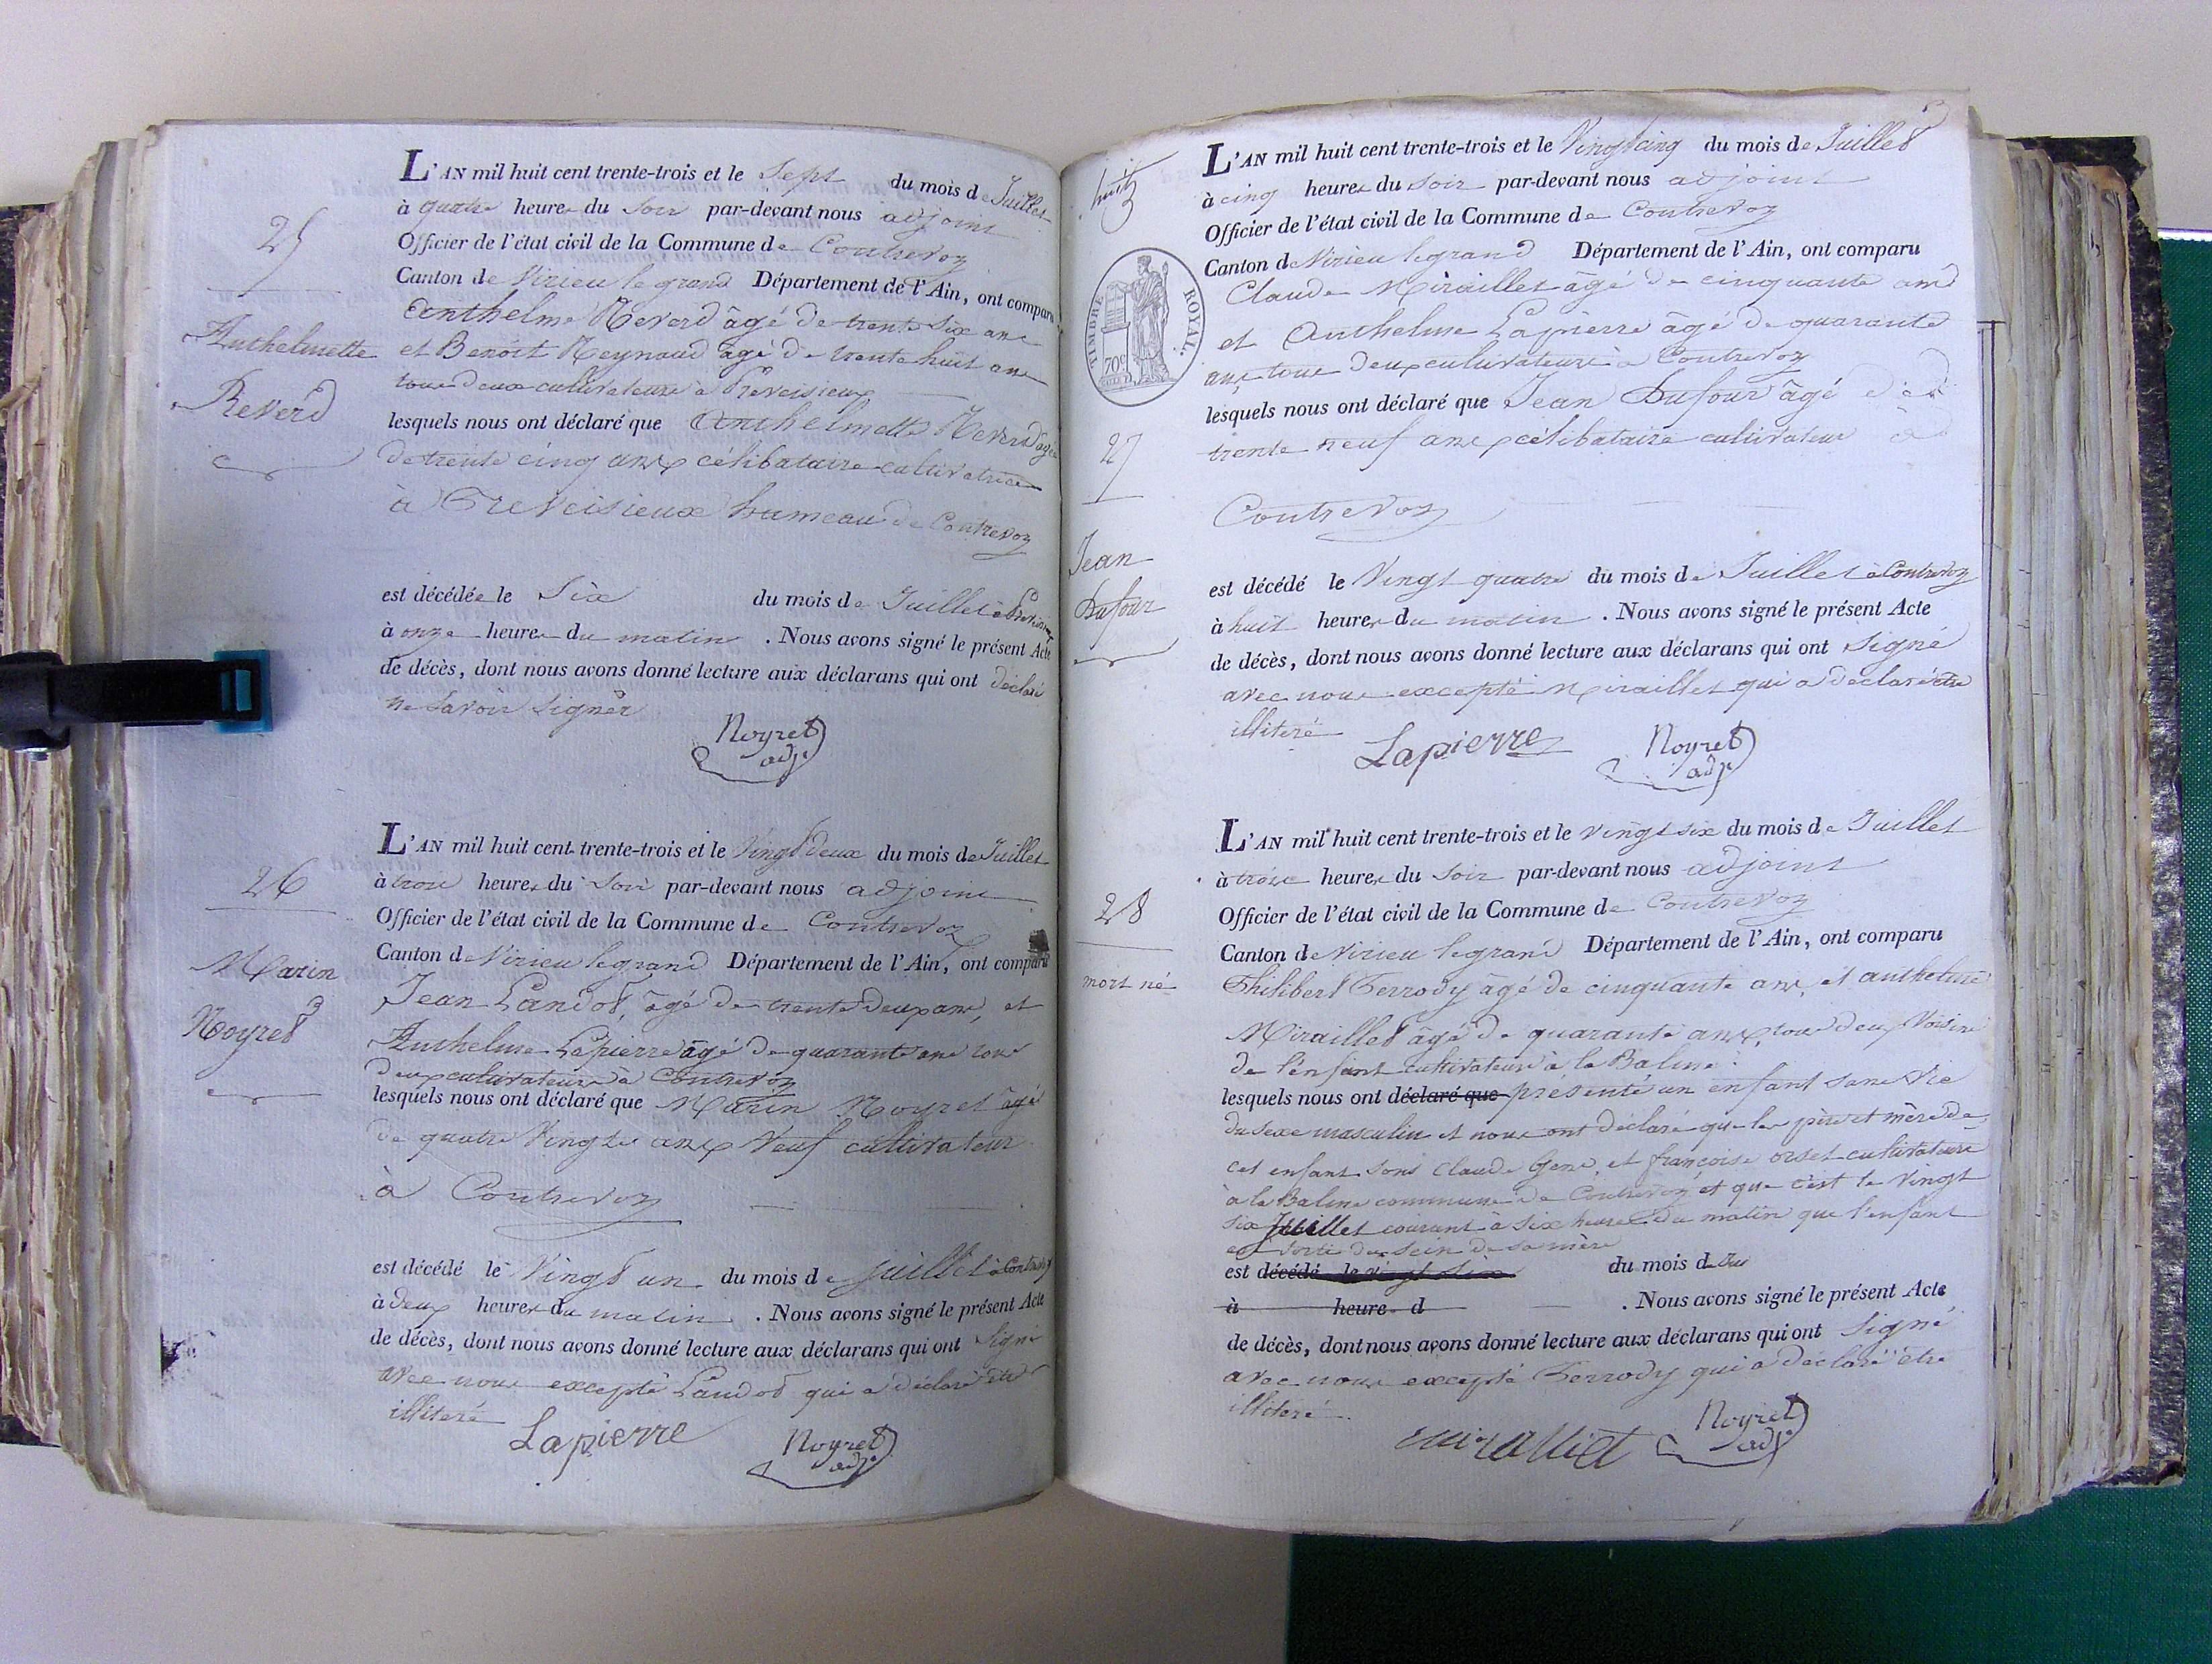 25
Anthelmette
Reverd
L'AN mil huit cent trente-trois et le Sept du mois de Juillet
à quatre heures du Soir par-devant nous adjoint
Officier de l'état civil de la Commune de Contrevoz
Canton de Virieu le grand Département de l'Ain, ont comparu
Anthelme Reverd âgé de trente Six ans
et Benoit Reynaud âgé de trente huit ans
tous deux cultivateurs à Preveisieux
lesquels nous ont déclaré que Anthelmette Reverd âgée
de trente cinq ans célibataire cultivatrice
à Preveisieux hameau de Contrevoz
est décédée le Six du mois de Juillet à
à onze heures du matin . Nous avons signé le présent Acte
de décès, dont nous avons donné lecture aux déclarans qui ont déclaré
ne Savoir Signer
Noyret
adj.
26
Marin
Noyret
L'AN mil huit cent trente-trois et le Vingt deux du mois de Juillet
à trois heures du Soir par-devant nous adjoint
Officier de l'état civil de la Commune de Contrevoz
Canton de Virieu le grand Département de l'Ain, ont comparu
Jean Landot, âgé de trente deux ans, et
Anthelme Lapierre âgé de quarante ans tous
deux cultivateurs à Contrevoz
lesquels nous ont déclaré que Marin Noyret âgé
de quatre Vingts ans Veuf cultivateur
à Contrevoz
est décédé le Vingt un du mois de Juillet à Contrevoz
à deux heures du matin . Nous avons signé le présent Acte
de décès, dont nous avons donné lecture aux déclarans qui ont Signé
avec nous excepté Landot qui a déclaré être
illiteré
Lapierre Noyret
adj.
huit
TIMBRE ROYAL.
70c
27
Jean
Dufour
L'AN mil huit cent trente-trois et le Vingt cinq du mois de Juillet
à cinq heures du Soir par-devant nous adjoint
Officier de l'état civil de la Commune de Contrevoz
Canton de Virieu le grand Département de l'Ain, ont comparu
Claude Miraillet âgé de cinquante ans
et Anthelme Lapierre âgé de quarante
ans tous deux cultivateurs à Contrevoz
lesquels nous ont déclaré que Jean Dufour âgé de
trente neuf ans célibataire cultivateur à
Contrevoz
est décédé le Vingt quatre du mois de Juillet à Contrevoz
à huit heures du matin . Nous avons signé le présent Acte
de décès, dont nous avons donné lecture aux déclarans qui ont Signé
avec nous excepté Miraillet qui a déclaré être
illiteré
Lapierre Noyret
adj.
28
mort né
L'AN mil huit cent trente-trois et le vingt six du mois de Juillet
à trois heures du Soir par-devant nous adjoint
Officier de l'état civil de la Commune de Contrevoz
Canton de Virieu le grand Département de l'Ain, ont comparu
Philibert Ferrody âgé de cinquante ans, et anthelme
Miraillet âgé de quarante ans, tous deux Voisins
de l'enfant cultivateurs à la Balme
lesquels nous ont déclaré que présenté un enfant sans Vie
du sexe masculin et nous ont déclaré que les père et mère de
cet enfant sont Claude Gene, et françoise orset cultivateurs
à la Balme commune de Contrevoz et que c'est le Vingt
six Juillet courant à six heures du matin que l'enfant
est sorti du sein de sa mère
est décédé le vingt six du mois d
à heure d . Nous avons signé le présent Acte
de décès, dont nous avons donné lecture aux déclarans qui ont Signé
avec nous excepté Ferrody qui a déclaré être
illiteré.
miralliet Noyret
adj.